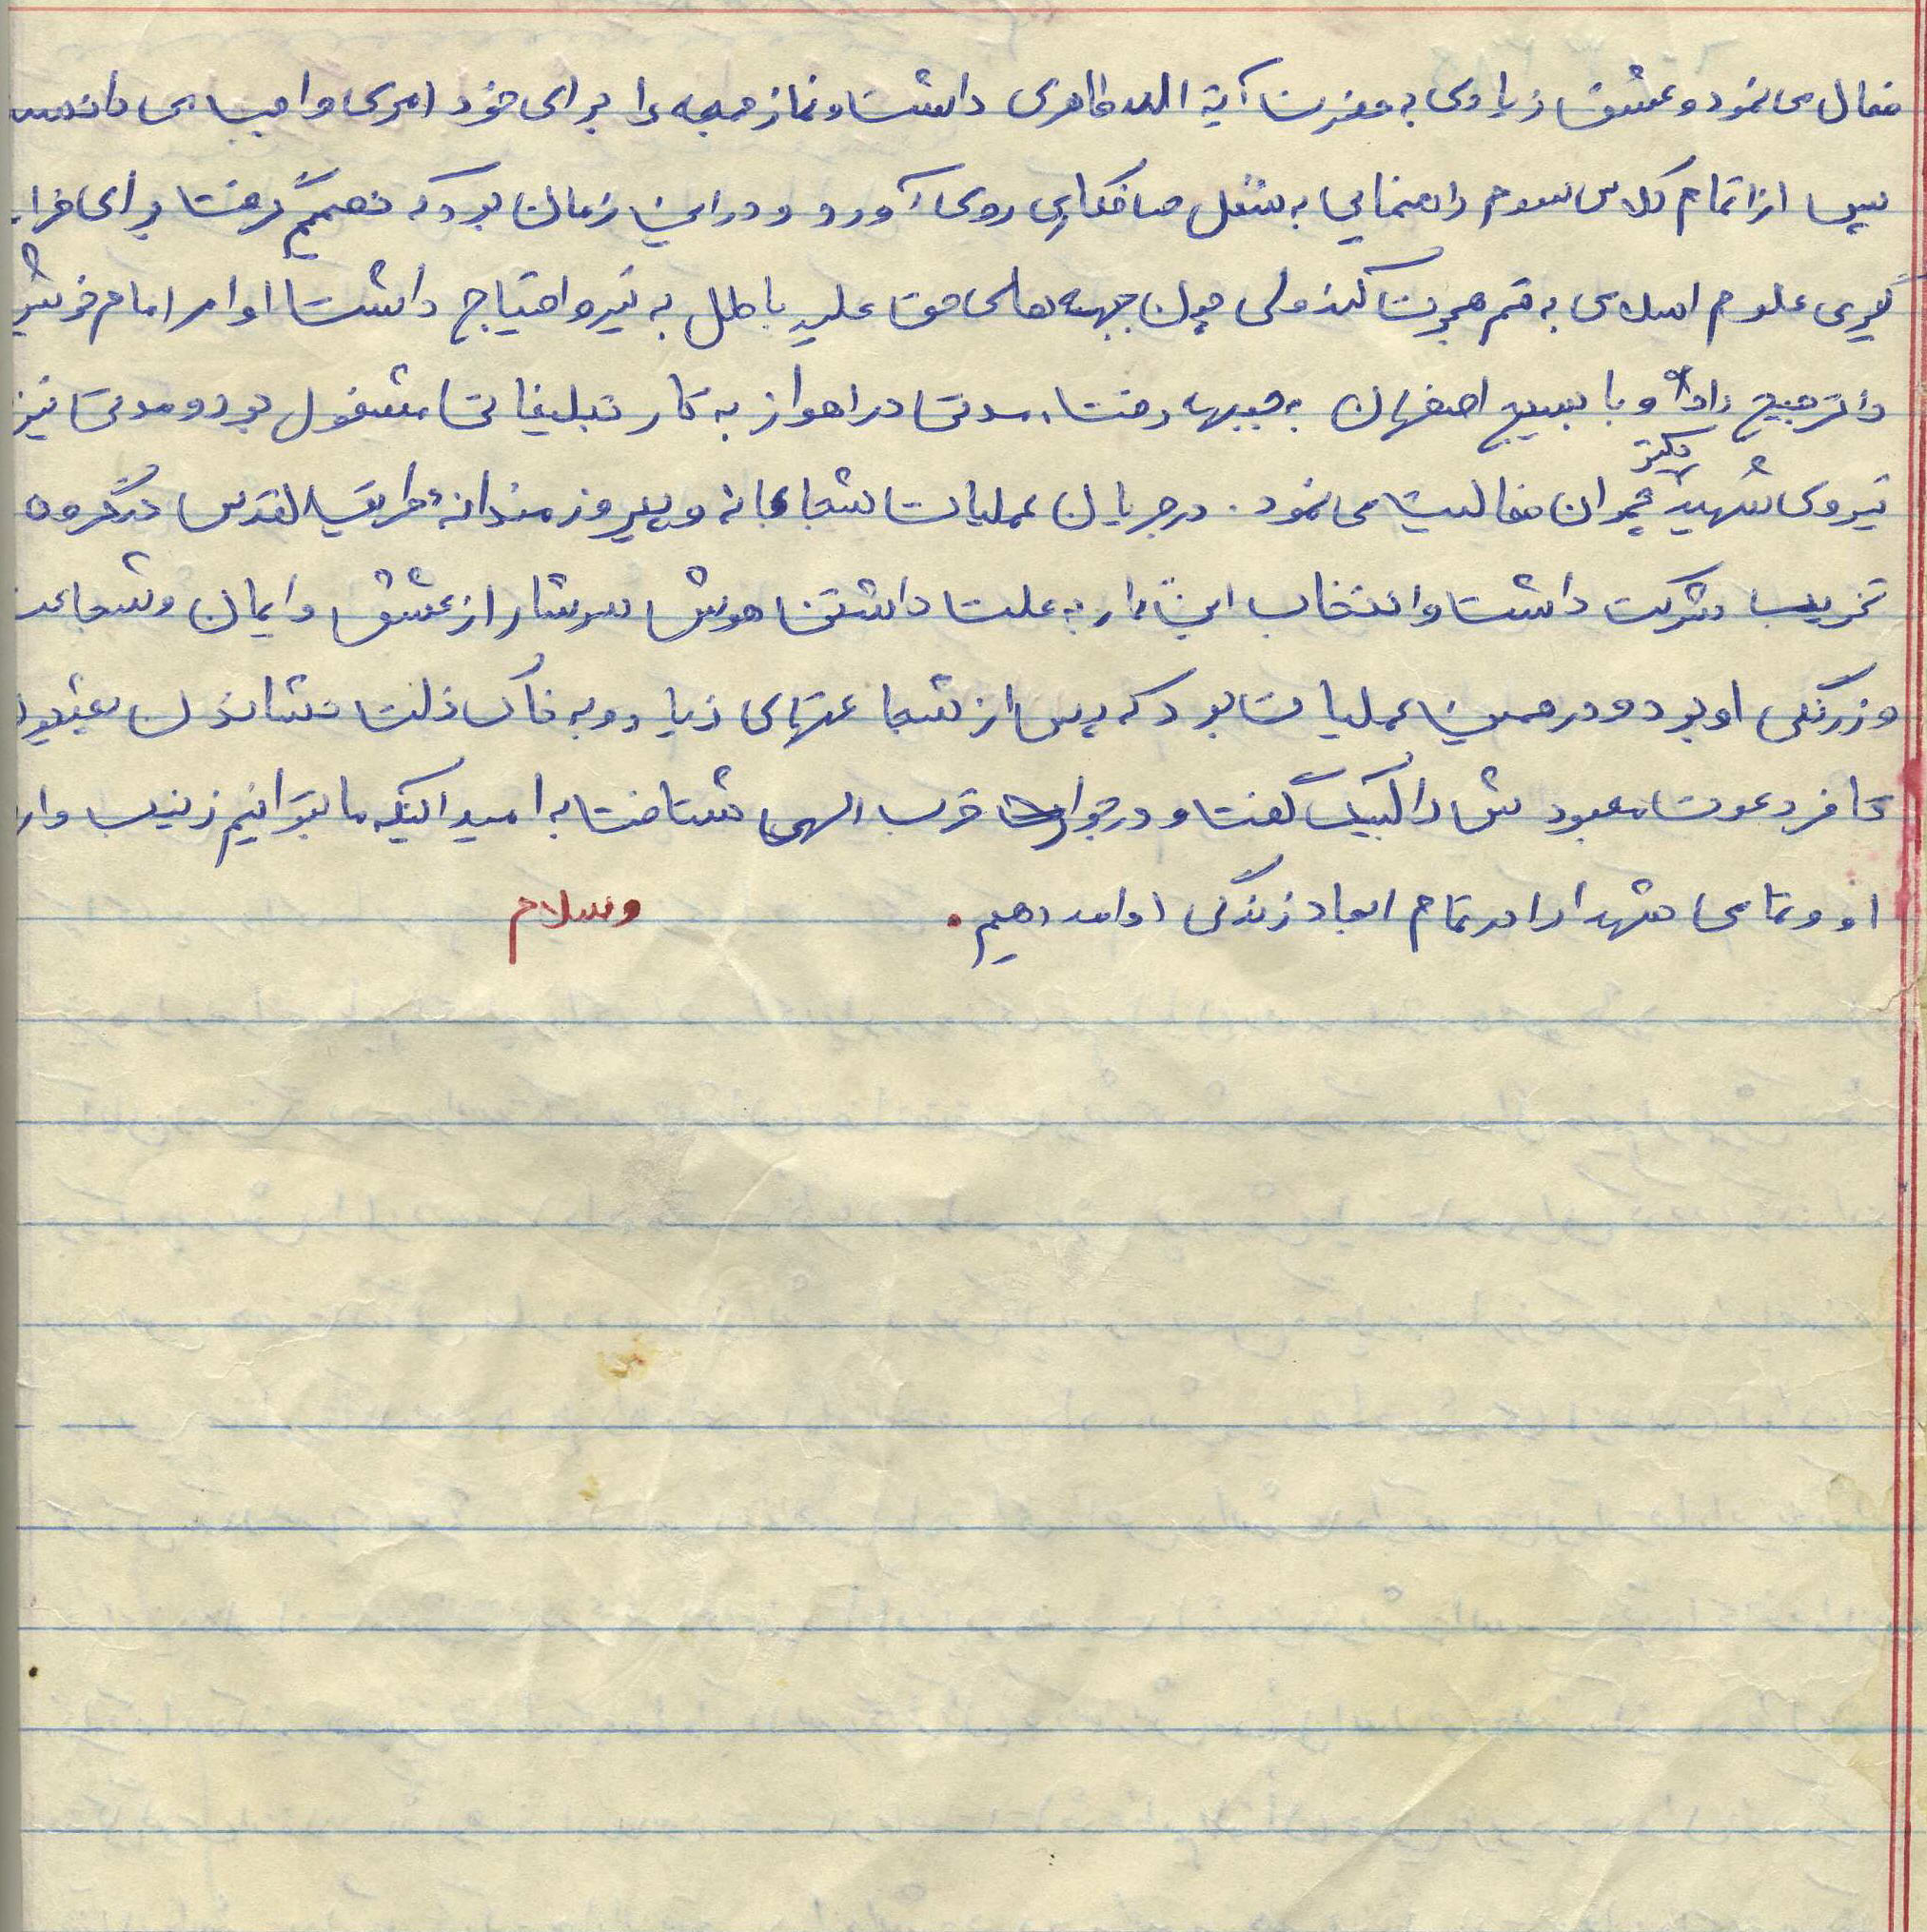 فعال می نمود و عشق زیادی به حضرت آیة الله طاهری داشت و نماز جمعه را برای خود امری واجب می دانست
پس از اتمام کلاس سوم راهنمایی به شغل صافکاری روی آورد و در این زمان بود که تصمیم گرفت برای فرا
گیری علوم اسلامی به قم هجرت کند ولی چون جبهه های حق علیه باطل به نیرو احتیاج داشت اوامر امام خویش
را ترجیح داد و با بسیج اصفهان به جبهه رفت. مدتی در اهواز به کار تبلیغاتی مشغول بود و مدتی نیز
نیروی شهید دکتر چمران فعالیت می نمود. در جریان عملیات شجاعانه و پیروزمندانه طریق القدس در گروه
تخریب شرکت داشت و انتخاب این کار به علت داشتن هوش سرشار از عشق و ایمان و شجاعت
و زرنگی او بود و در همین عملیات بود که پس از شجاعتهای زیاد و به خاک ذلت نشاندن بعثیون
کافر دعوت معبودش را لبیک گفت و در جوار قرب الهی شتافت به امید اینکه ما بتوانیم زینب وار
او و تمامی شهدا را در تمام ابعاد زندگی ادامه دهیم. وسلام